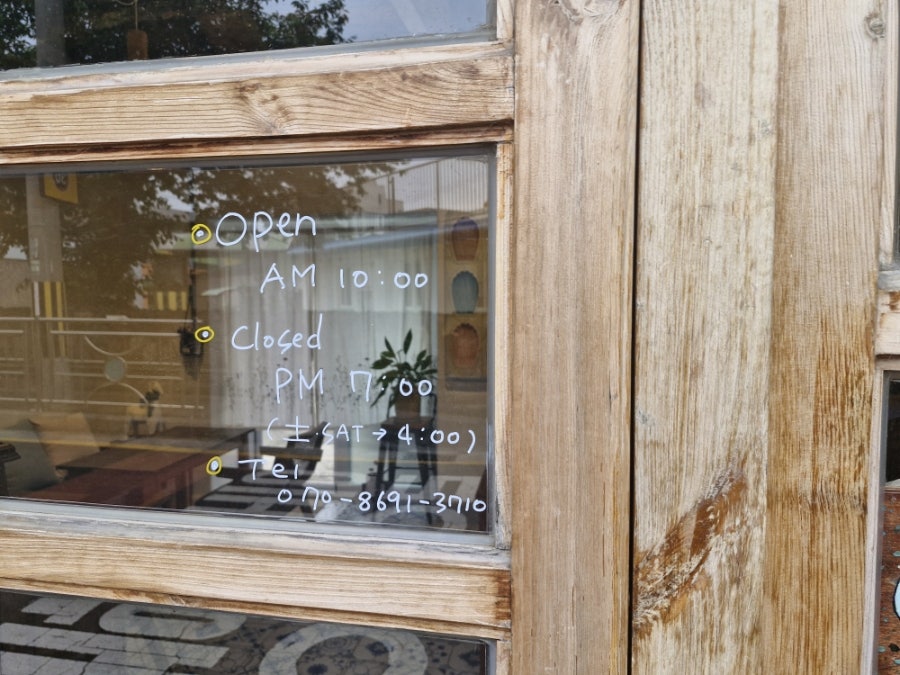 Open
AM 10:00
Closed
PM 7:00
(土.SAT→4:00)
Tel
070-8691-3710